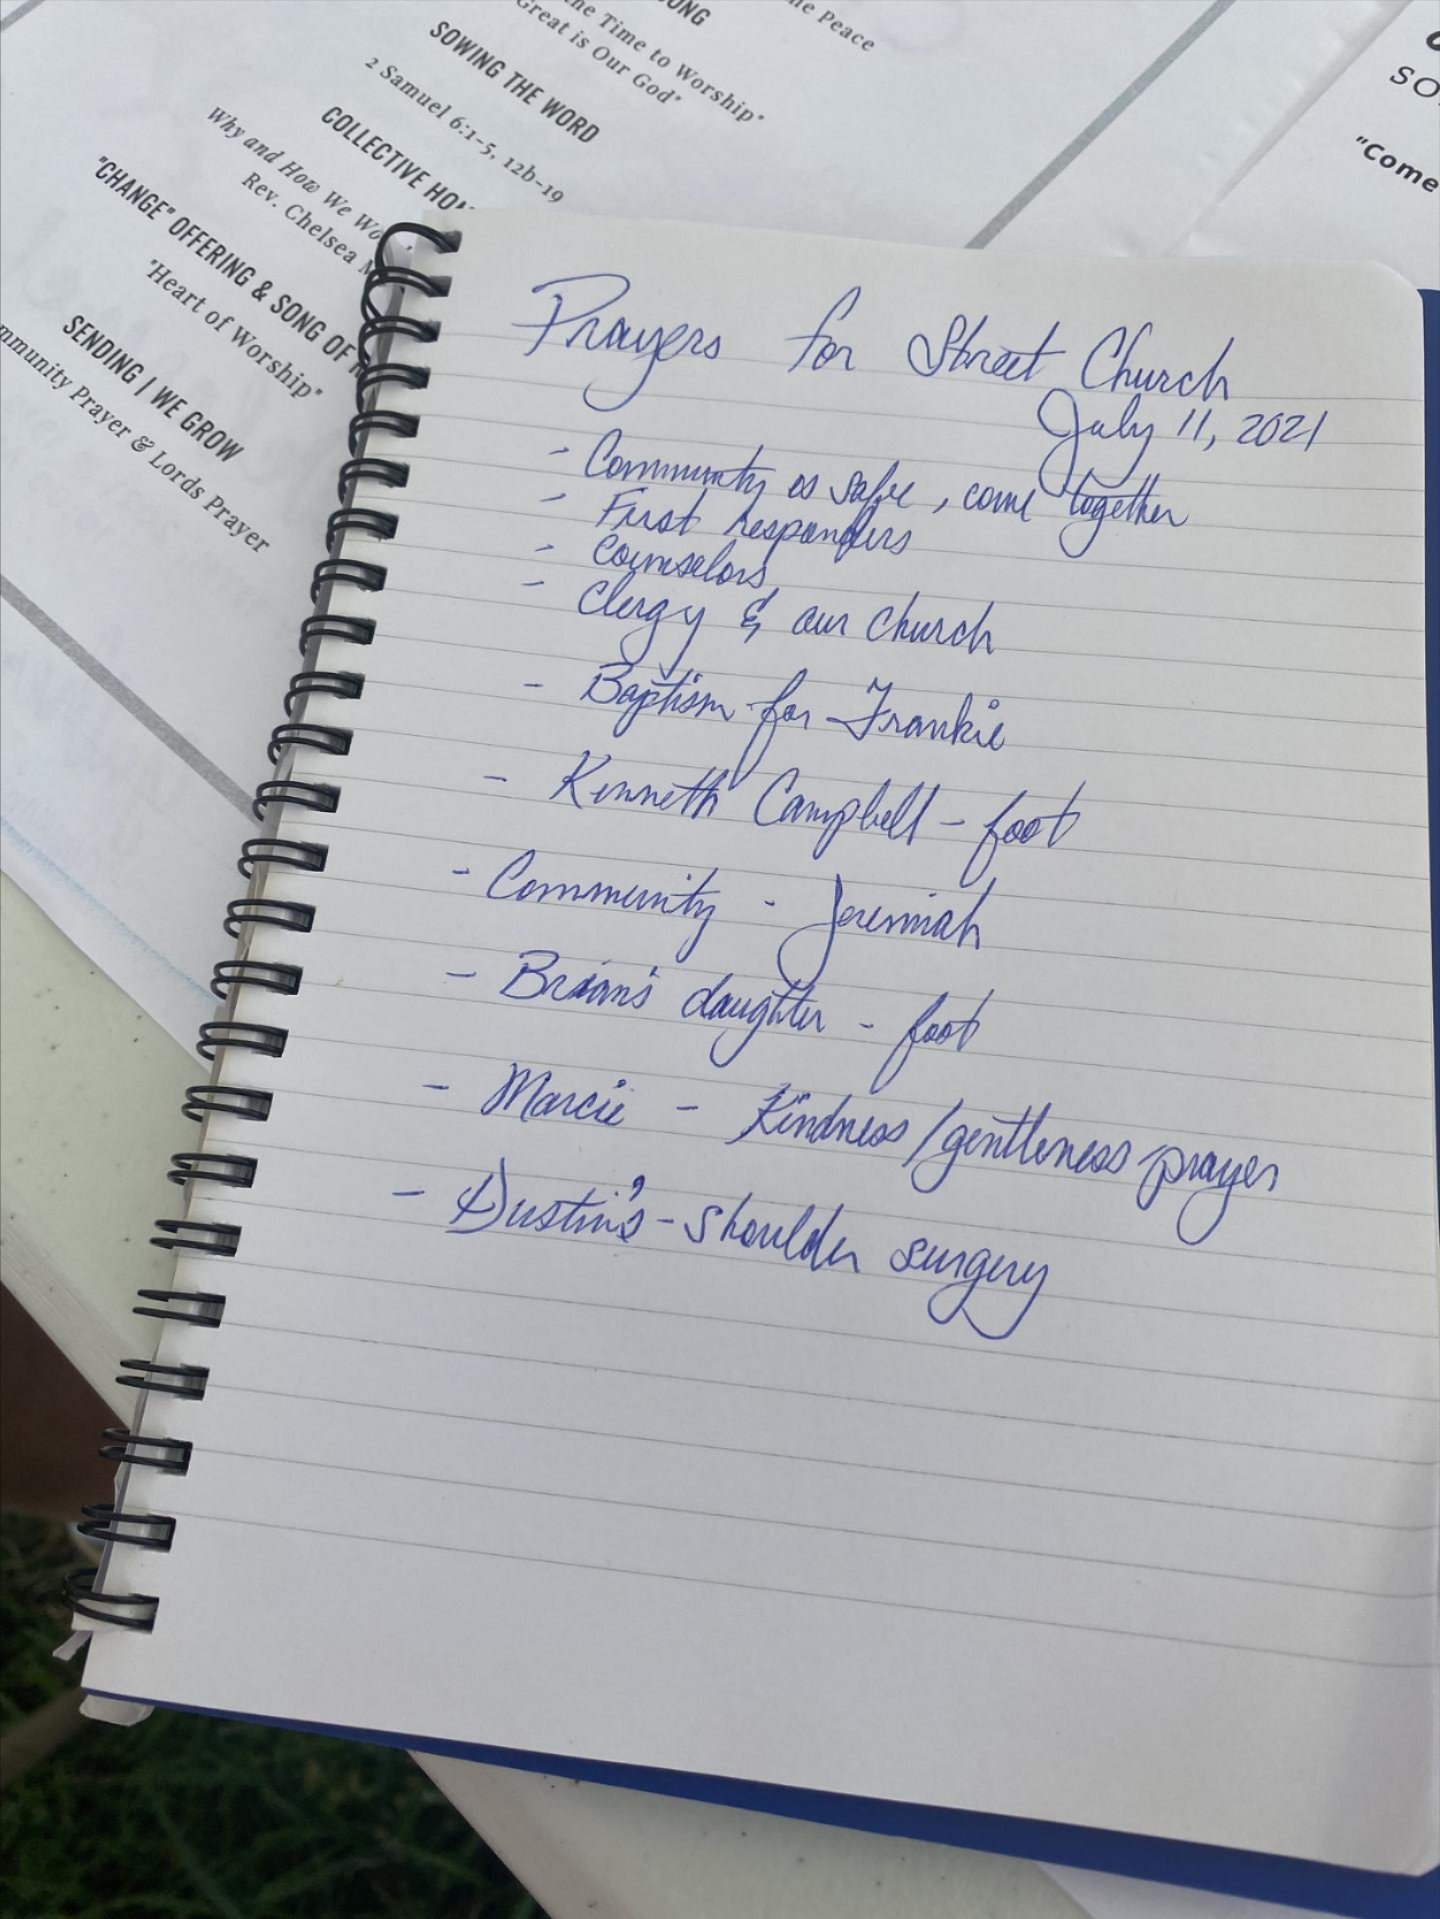 the Peace
the Time to Worship"
Great is Our God"
SOWING THE WORD
2 Samuel 6:1-5, 12b-19
COLLECTIVE
Why and How We
Rev. Chelsea
"CHANGE" OFFERING & SONG OF
"Heart of Worship"
SENDING | WE GROW
Prayer & Lords Prayer
"Come
Prayers for Street Church
July 11, 2021
- Community is safe, come together
- First responders
- Counselors
- Clergy & our church
- Baptism for Frankie
- Kenneth Campbell - foot
- Community - Jeremiah
- Brian's daughter - foot
- Marcie - Kindness/gentleness prayer
- Dustin's - shoulder surgery